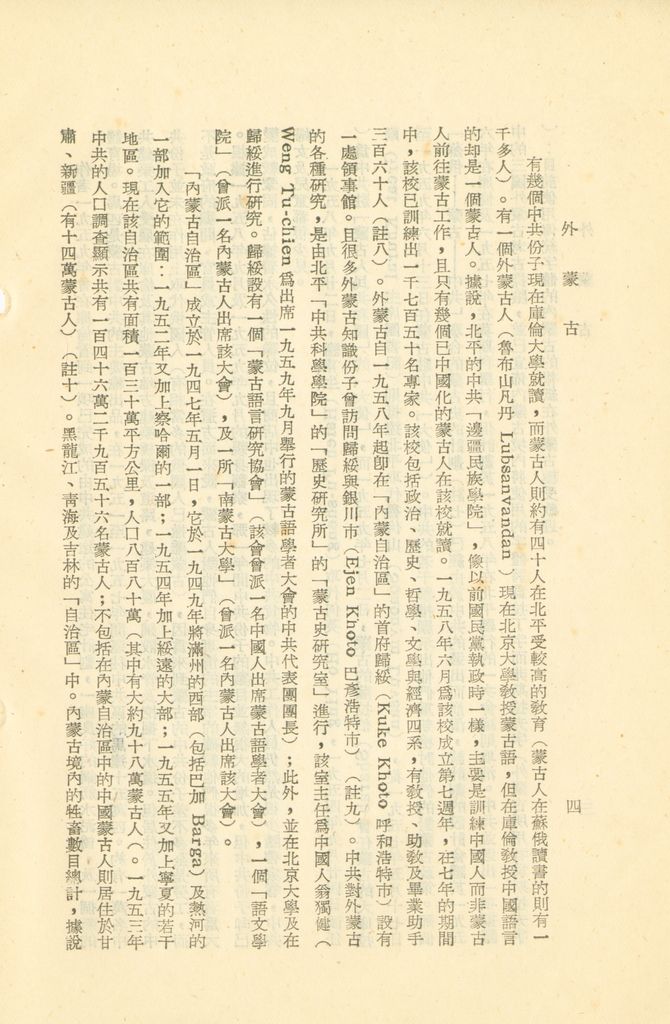 外蒙古
四
有幾個中共份子現在庫倫大學就讀，而蒙古人則約有四十人在北平受較高的敎育（蒙古人在蘇俄讀書的則有一
千多人）。有一個外蒙古人（魯布山凡丹 Lubsanvandan ）現在北京大學敎授蒙古語，但在庫倫敎授中國語言
的却是一個蒙古人。據說，北平的中共「邊疆民族學院」，像以前國民黨執政時一樣，主要是訓練中國人而非蒙古
人前往蒙古工作，且只有幾個已中國化的蒙古人在該校就讀。一九五八年六月爲該校成立第七週年，在七年的期間
中，該校已訓練出一千七百五十名專家。該校包括政治、歷史、哲學、文學與經濟四系，有敎授、助敎及畢業助手
三百六十人（註八）。外蒙古自一九五八年起卽在「內蒙古自治區」的首府歸綏（Kuke Khoto 呼和浩特市）設有
一處領事館。且很多外蒙古知識份子曾訪問歸綏與銀川市（Ejen Khoto 巴彥浩特市）（註九）。中共對外蒙古
的各種研究，是由北平「中共科學學院」的「歷史研究所」的「蒙古史研究室」進行，該室主任爲中國人翁獨健（
Weng Tu-chien 爲出席一九五九年九月舉行的蒙古語學者大會的中共代表團團長）；此外，並在北京大學及在
歸綏進行研究。歸綏設有一個「蒙古語言研究協會」（該會曾派一名中國人出席蒙古語學者大會），一個「語文學
院」（曾派一名內蒙古人出席該大會），及一所「南蒙古大學」（曾派一名內蒙古人出席該大會）。
「內蒙古自治區」成立於一九四七年五月一日，它於一九四九年將滿州的西部（包括巴加 Barga）及熱河的
一部加入它的範圍：一九五二年又加上察哈爾的一部；一九五四年加上綏遠的大部；一九五五年又加上寧夏的若干
地區。現在該自治區共有面積一百三十萬平方公里，人口八百八十萬（其中有大約九十八萬蒙古人（。一九五三年
中共的人口調查顯示共有一百四十六萬二千九百五十六名蒙古人；不包括在內蒙自治區中的中國蒙古人則居住於甘
肅、新疆（有十四萬蒙古人）（註十）。黑龍江、靑海及吉林的「自治區」中。內蒙古境內的牲畜數目總計，據說